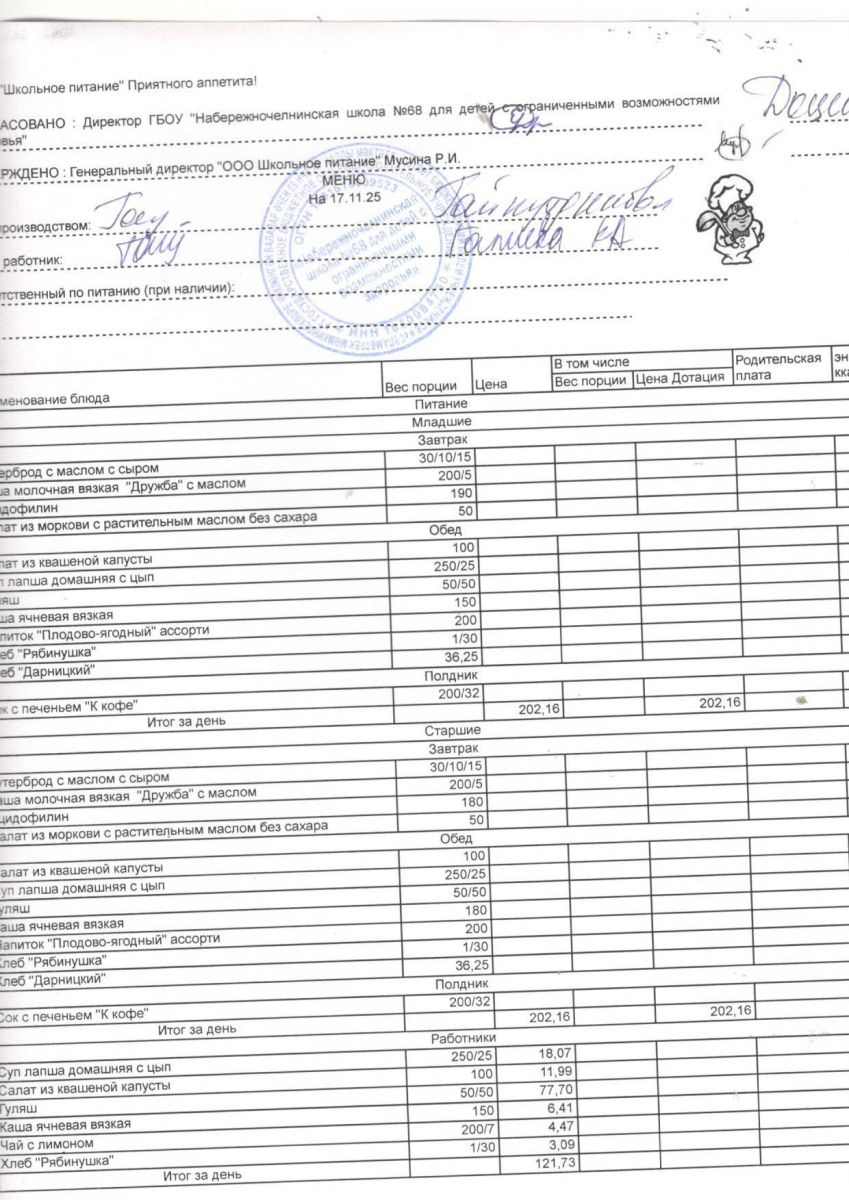 "Школьное питание" Приятного аппетита!
АСОВАНО : Директор ГБОУ "Набережночелнинская школа №68 для детей с ограниченными возможностями
вья"
РЖДЕНО : Генеральный директор "ООО Школьное питание" Мусина Р.И.
МЕНЮ
На 17.11.25
производством:
работник:
тственный по питанию (при наличии):
«Набережночелнинская школа №68 для детей с ограниченными возможностями здоровья»
менование блюда Вес порции Цена В том числе Родительская плата эн
Вес порции Цена Дотация кка
Питание
Младшие
Завтрак
ерброд с маслом с сыром 30/10/15
ша молочная вязкая "Дружба" с маслом 200/5
идофилин 190
лат из моркови с растительным маслом без сахара 50
Обед
лат из квашеной капусты 100
п лапша домашняя с цып 250/25
ляш 50/50
ша ячневая вязкая 150
питок "Плодово-ягодный" ассорти 200
еб "Рябинушка" 1/30
еб "Дарницкий" 36,25
Полдник
ок с печеньем "К кофе" 200/32
Итог за день 202,16 202,16
Старшие
Завтрак
утерброд с маслом с сыром 30/10/15
аша молочная вязкая "Дружба" с маслом 200/5
цидофилин 180
алат из моркови с растительным маслом без сахара 50
Обед
алат из квашеной капусты 100
уп лапша домашняя с цып 250/25
уляш 50/50
аша ячневая вязкая 180
Напиток "Плодово-ягодный" ассорти 200
Хлеб "Рябинушка" 1/30
Хлеб "Дарницкий" 36,25
Полдник
Сок с печеньем "К кофе" 200/32
Итог за день 202,16 202,16
Работники
Суп лапша домашняя с цып 250/25 18,07
Салат из квашеной капусты 100 11,99
Гуляш 50/50 77,70
Каша ячневая вязкая 150 6,41
Чай с лимоном 200/7 4,47
Хлеб "Рябинушка" 1/30 3,09
Итог за день 121,73